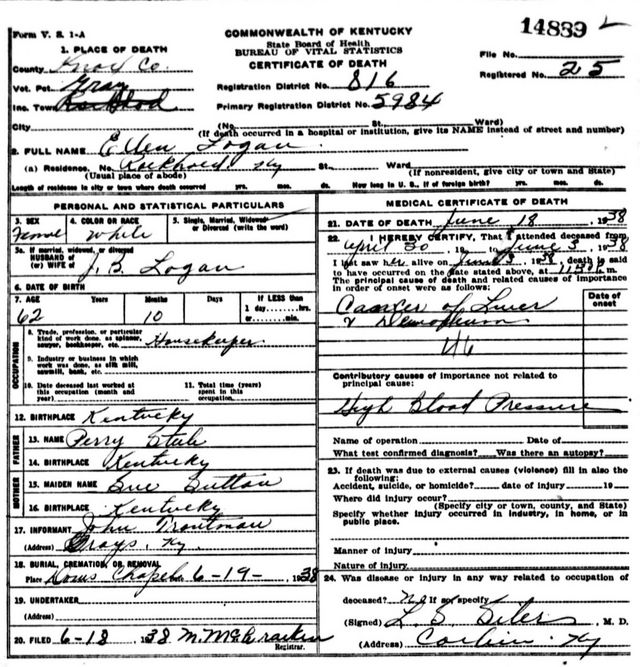 Form V. S. 1-A
COMMONWEALTH OF KENTUCKY
State Board of Health
BUREAU OF VITAL STATISTICS
CERTIFICATE OF DEATH
14889
1. PLACE OF DEATH
County Knox Co.
Vot. Pct. Gray
Inc. Town Rockhold
City
File No.
Registered No. 25
Registration District No. 816
Primary Registration District No. 5984
(No. St. Ward)
(If death occurred in a hospital or institution, give its NAME instead of street and number)
2. FULL NAME Ellen Logan
(a) Residence. No. Rockhold Ky St. Ward
(Usual place of abode) (If nonresident, give city or town and State)
Length of residence in city or town where death occurred yrs. mos. ds. How long in U. S., if of foreign birth? yrs. mos. ds.
PERSONAL AND STATISTICAL PARTICULARS
3. SEX 4. COLOR OR RACE 5. Single, Married, Widowed or Divorced (write the word)
Female White
5a. If married, widowed, or divorced
HUSBAND of
(or) WIFE of J. B. Logan
6. DATE OF BIRTH
7. AGE Years Months Days If LESS than
1 day......hrs.
or......min.
62 10
OCCUPATION
8. Trade, profession, or particular kind of work done, as spinner, sawyer, bookkeeper, etc. Housekeeper
9. Industry or business in which work was done, as silk mill, sawmill, bank, etc.
10. Date deceased last worked at this occupation (month and year)
11. Total time (years) spent in this occupation
12. BIRTHPLACE Kentucky
FATHER
13. NAME Perry
14. BIRTHPLACE Kentucky
MOTHER
15. MAIDEN NAME Sue Sutton
16. BIRTHPLACE Kentucky
17. INFORMANT John Troutman
(Address) Grays, Ky
18. BURIAL, CREMATION, OR REMOVAL
Place Chapel 6-19- 1938
19. UNDERTAKER
(Address)
20. FILED 6-18 1938 M. McCracken
Registrar.
MEDICAL CERTIFICATE OF DEATH
21. DATE OF DEATH June 18, 1938
22. I HEREBY CERTIFY, That I attended deceased from
April 30 19 to June 3, 1938
I last saw her alive on June 3 1938, death is said
to have occurred on the date stated above, at m.
The principal cause of death and related causes of importance
in order of onset were as follows:
Date of onset
Cancer of Liver
&
46
Contributory causes of importance not related to
principal cause:
High Blood Pressure
Name of operation Date of
What test confirmed diagnosis? Was there an autopsy?
23. If death was due to external causes (violence) fill in also the
following:
Accident, suicide, or homicide? date of injury 19
Where did injury occur?
(Specify city or town, county, and State)
Specify whether injury occurred in industry, in home, or in
public place.
Manner of injury
Nature of injury
24. Was disease or injury in any way related to occupation of
deceased? No If so specify
(Signed) L. S. Siler M. D.
(Address) Corbin Ky